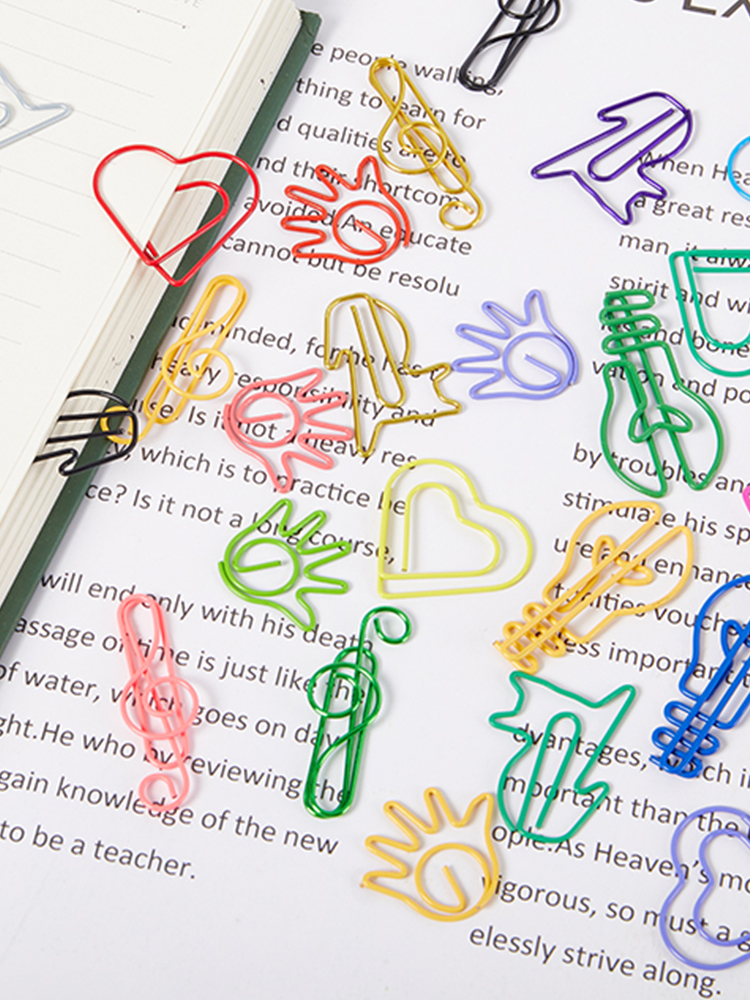 e people walking,
thing to learn for
d qualities are to
nd their shortcom
avoided.An educate
cannot but be resolu
minded, for he has
heavy responsibility and
Is it not a heavy res
, which is to practice be
ce? Is it not a long course,
will end only with his death
assage of time is just like the
of water, which goes on day
ght.He who by reviewing the
gain knowledge of the new
to be a teacher.
When Hea
a great res
man, it alw
spirit and wi
and bone
vation and po
by troubles and
stimulate his sp
ure and enhance
vouch
ess important
dvantages, which i
mportant than the
ople.As Heaven's mo
vigorous, so must a g
elessly strive along.